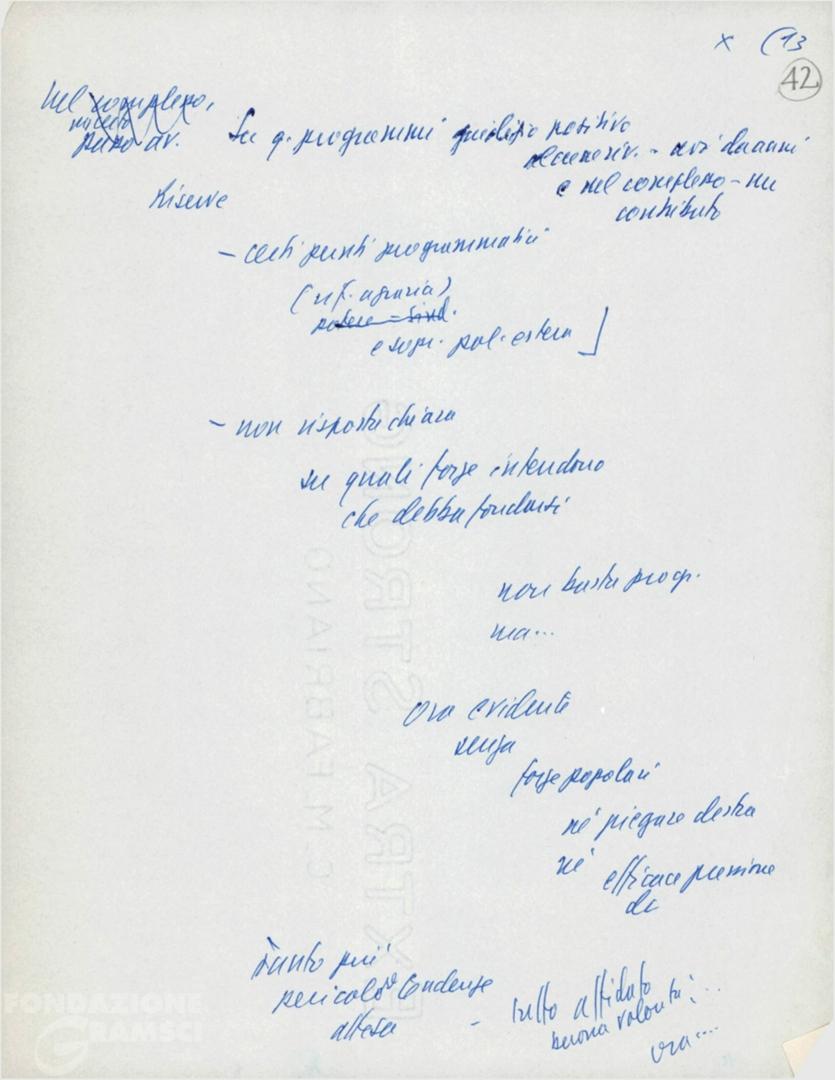 x (13
42
Nel complesso,
Su q. programmi giudizio positivo
e nel complesso - un
contributo
Riserve
- certi punti programmatici
(rif. agraria)
potere - sind.
e sopr. pol. estera ]
- non risposta chiara
su quali forze intendono
che debba fondarsi
non basta progr.
ma...
Ora evidente
senza
forze popolari
né piegare destra
né efficace pressione
dc
Tanto più
pericolo tendenze
attesa
- tutto affidato
buona volontà:...
ora....
EXTRA STRONG
C. M. FABRIANO
FONDAZIONE
GRAMSCI